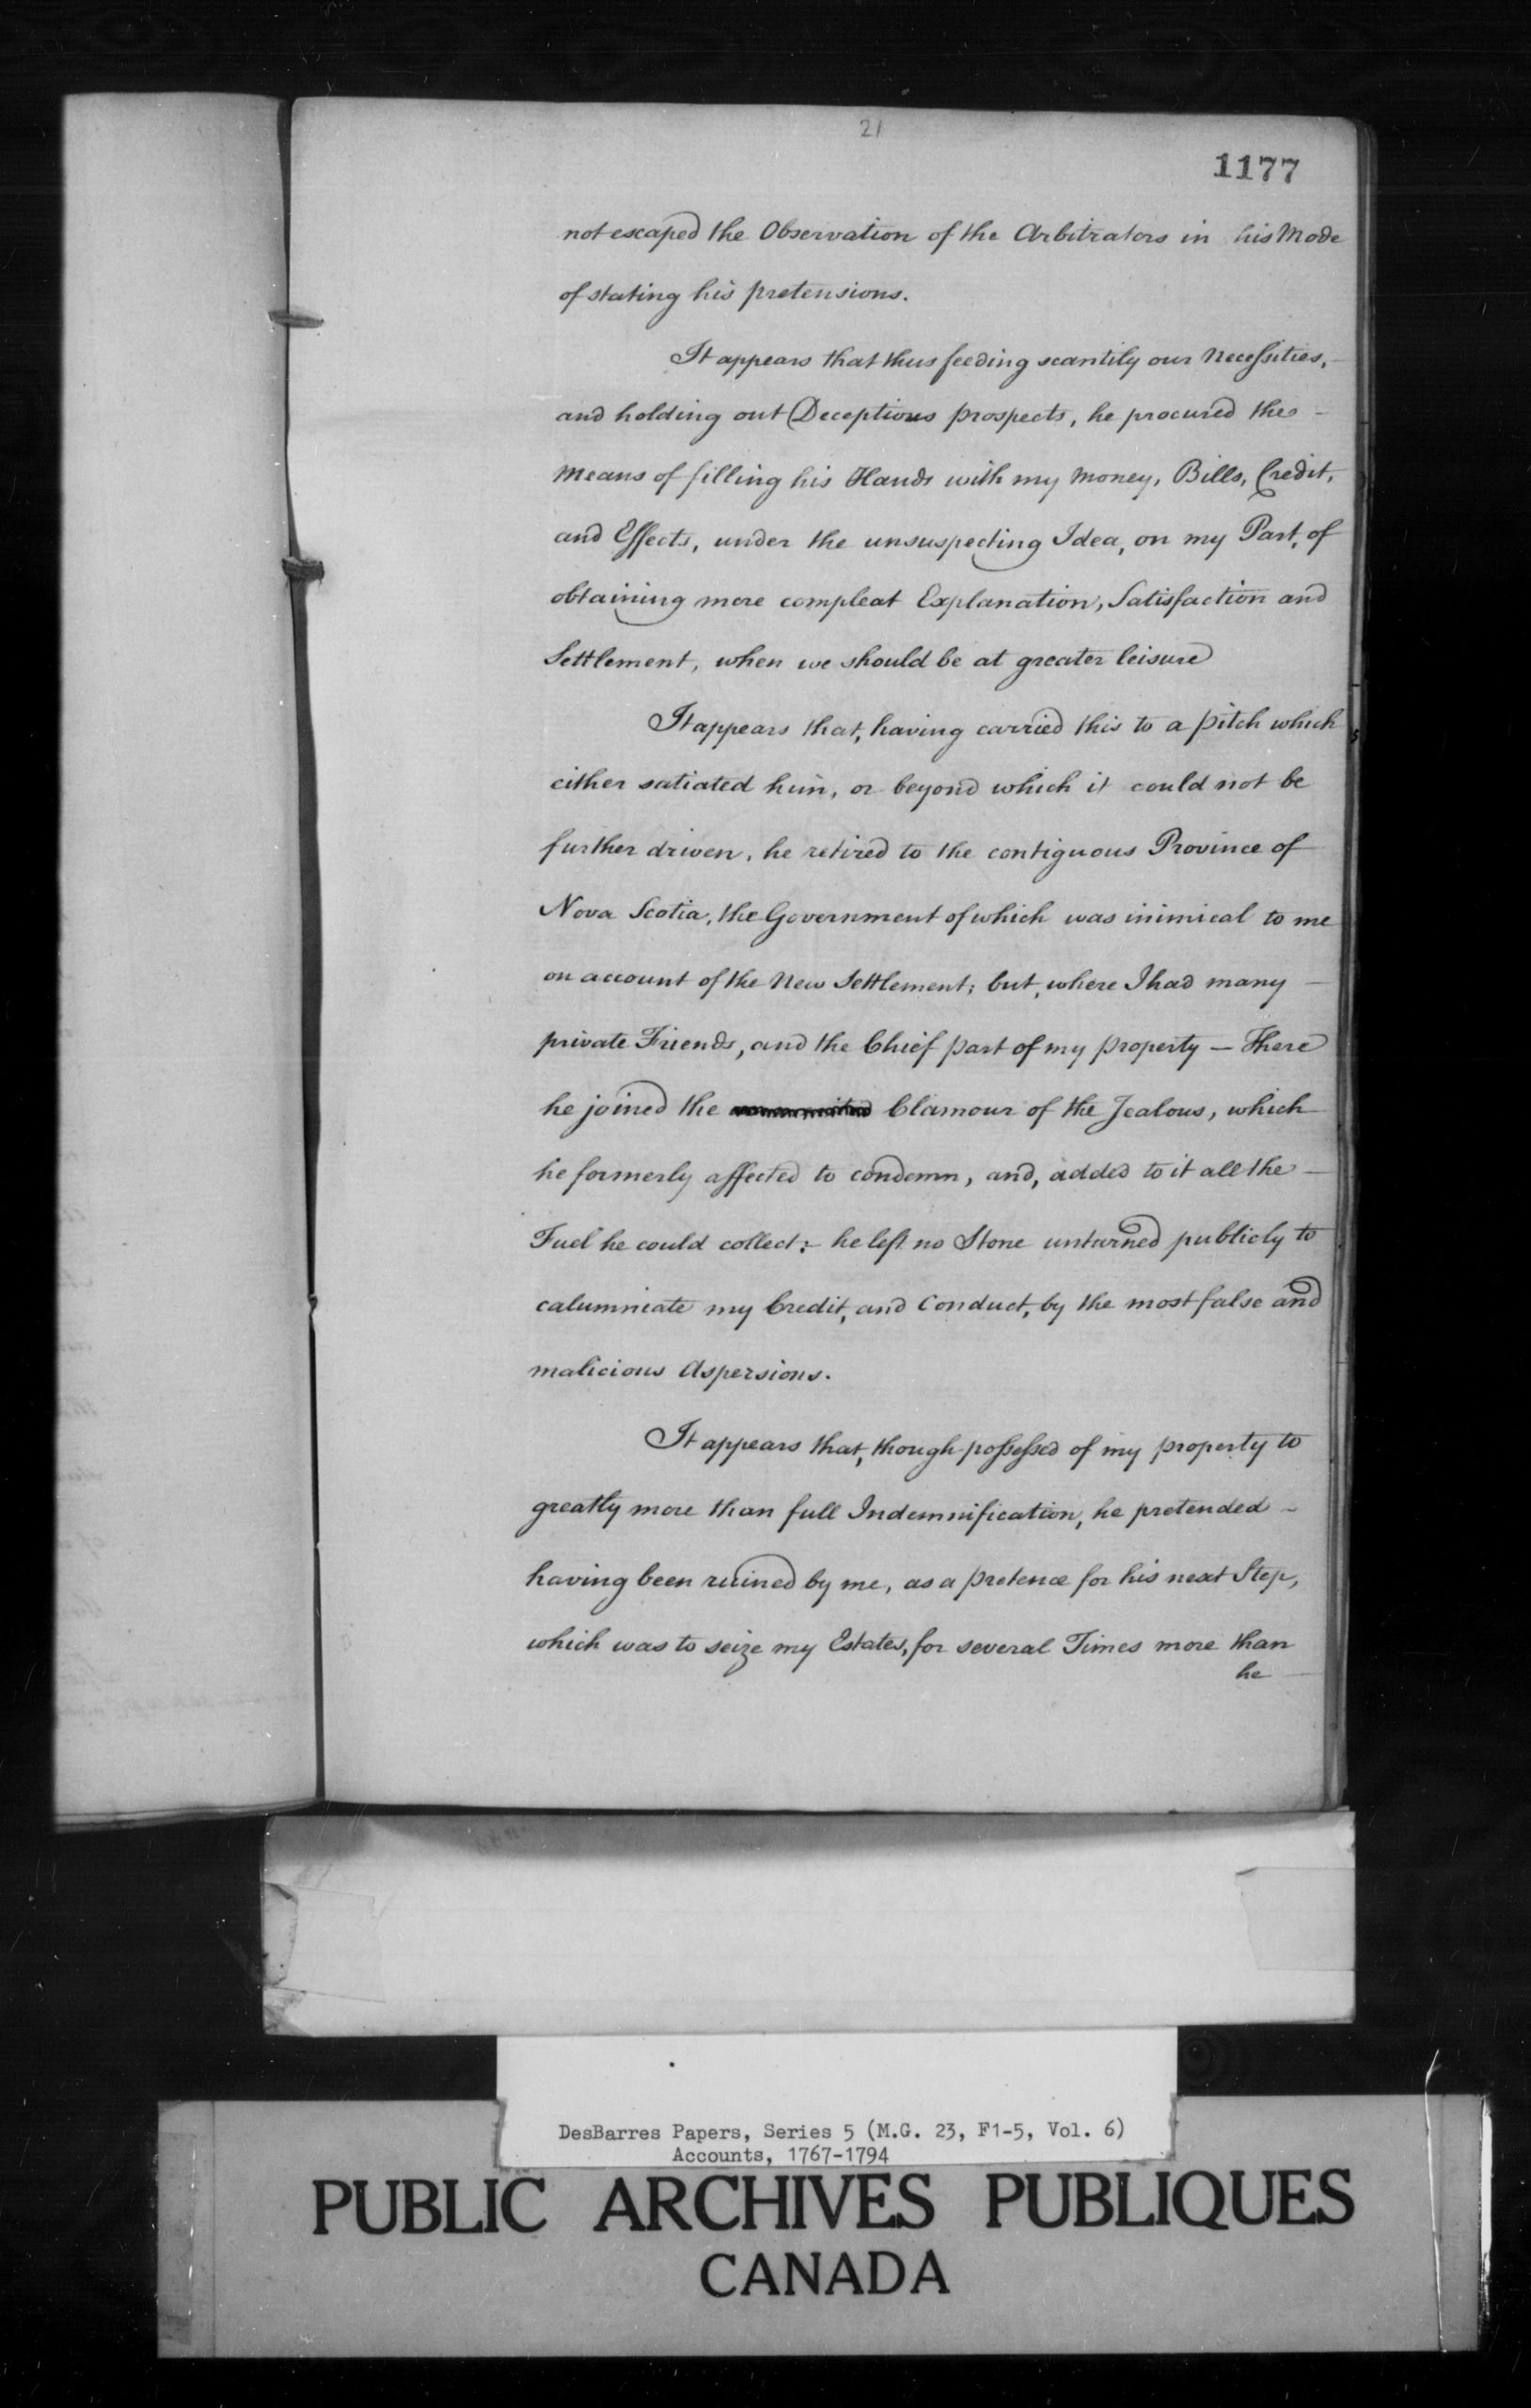 21
1177
not escaped the Observation of the Arbitrators in his Mode
of stating his pretensions.
It appears that thus feeding scantily our Necessities,
and holding out Deceptious prospects, he procured the
Means of filling his Hands with my Money, Bills, Credit,
and Effects, under the unsuspecting Idea, on my Part, of
obtaining more compleat Explanation, Satisfaction and
Settlement, when we should be at greater leisure
It appears that, having carried this to a pitch which
either satiated him, or beyond which it could not be
further driven, he retired to the contiguous Province of
Nova Scotia, the Government of which was inimical to me
on account of the New Settlement; but, where I had many
private Friends, and the Chief part of my property — There
he joined the Clamour of the Jealous, which
he formerly affected to condemn, and, added to it all the
Fuel he could collect:- he left no Stone unturned publicly to
calumniate my Credit, and Conduct, by the most false and
malicious Aspersions.
It appears that, though possessed of my property to
greatly more than full Indemnification, he pretended
having been ruined by me, as a pretence for his next Step,
which was to seize my Estates, for several Times more than
he
DesBarres Papers, Series 5 (M.G. 23, F1-5, Vol. 6)
Accounts, 1767-1794
PUBLIC ARCHIVES PUBLIQUES
CANADA